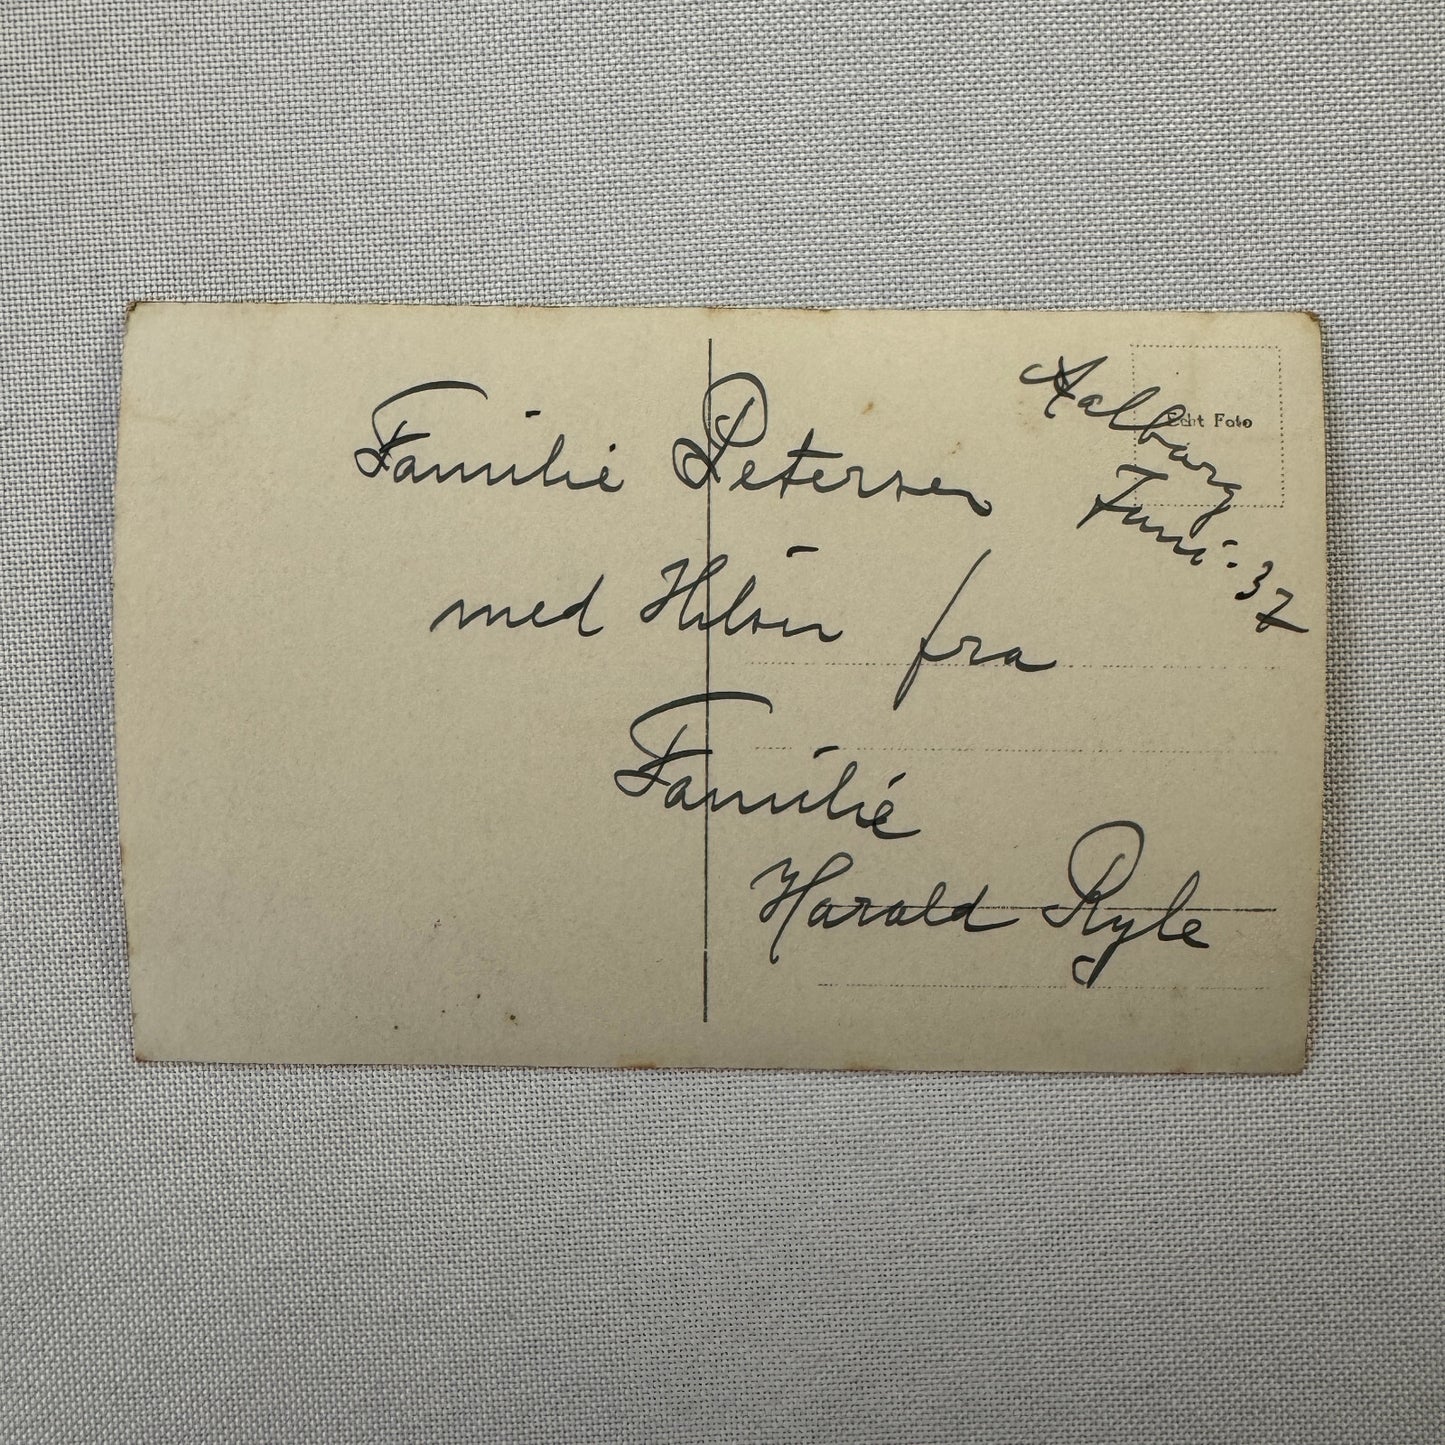 Aalborg
Juni - 37
Echt Foto
Familie Petersen
med Hilsen fra
Familie
Harald Ryle